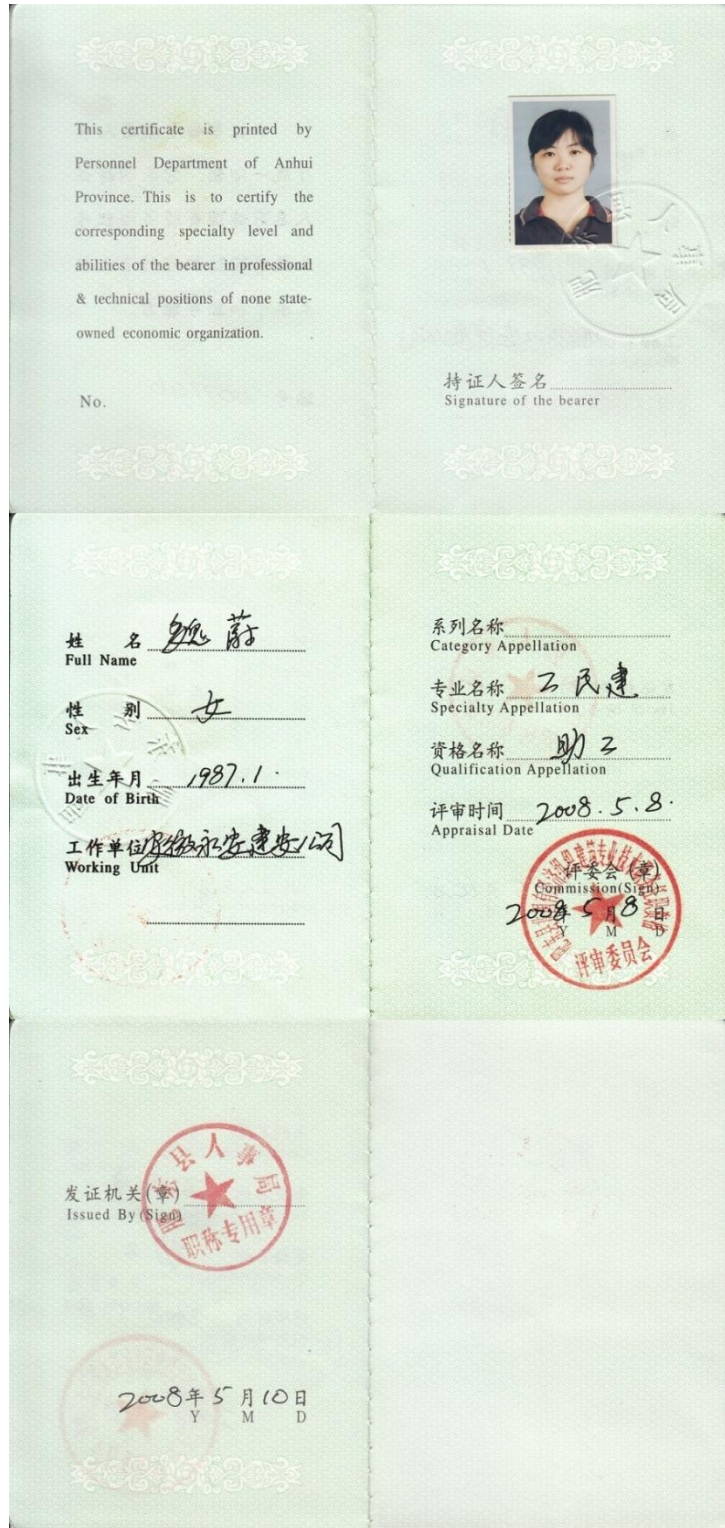 This certificate is printed by
Personnel Department of Anhui
Province. This is to certify the
corresponding specialty level and
abilities of the bearer in professional
& technical positions of none state-
owned economic organization.
No.
持证人签名
Signature of the bearer
姓 名 魏蔚
Full Name
性 别 女
Sex
出生年月 1987.1.
Date of Birth
工作单位 安徽永安建安公司
Working Unit
系列名称
Category Appellation
专业名称 工民建
Specialty Appellation
资格名称 助工
Qualification Appellation
评审时间 2008.5.8.
Appraisal Date
评委会(章)
Commission(Sign)
2008年5月8日
Y M D
评审委员会
县人事局
发证机关(章)
Issued By (Sign)
职称专用章
2008年5月10日
Y M D